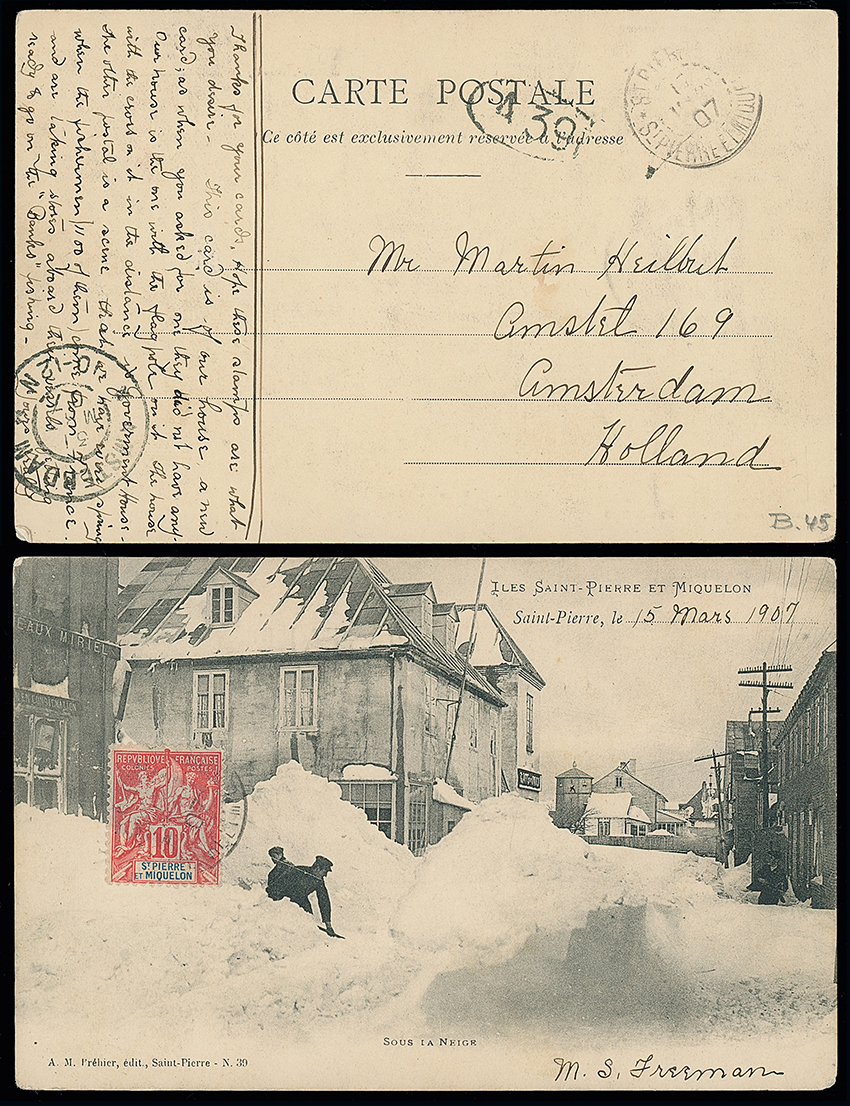 CARTE POSTALE
Ce côté est exclusivement réservée à l'adresse
Thanks for your cards, Hope these stamps are what
you desire - This card is of our house, a new
card, as when you asked for one they did not have any -
Our house is the one with the flag pole on it The house
with the cross on it in the distance is Government House -
The other postal is a scene that we have every spring
when the fishermen (1100 of them) come from France.
and are taking stores aboard their vessels
ready to go on the "Banks" fishing -
Mr Martin Heilbut
Amstel 169
Amsterdam
Holland
B.45
430
07
ST PIERRE ET MIQUELON
ILES SAINT-PIERRE ET MIQUELON
Saint-Pierre, le 15 Mars 1907
EAUX MIRTEL
REPUBLIQUE FRANÇAISE
COLONIES POSTES
10
ST PIERRE
ET MIQUELON
SOUS LA NEIGE
A. M. Bréhier, édit., Saint-Pierre - N. 39
M. S. Freeman